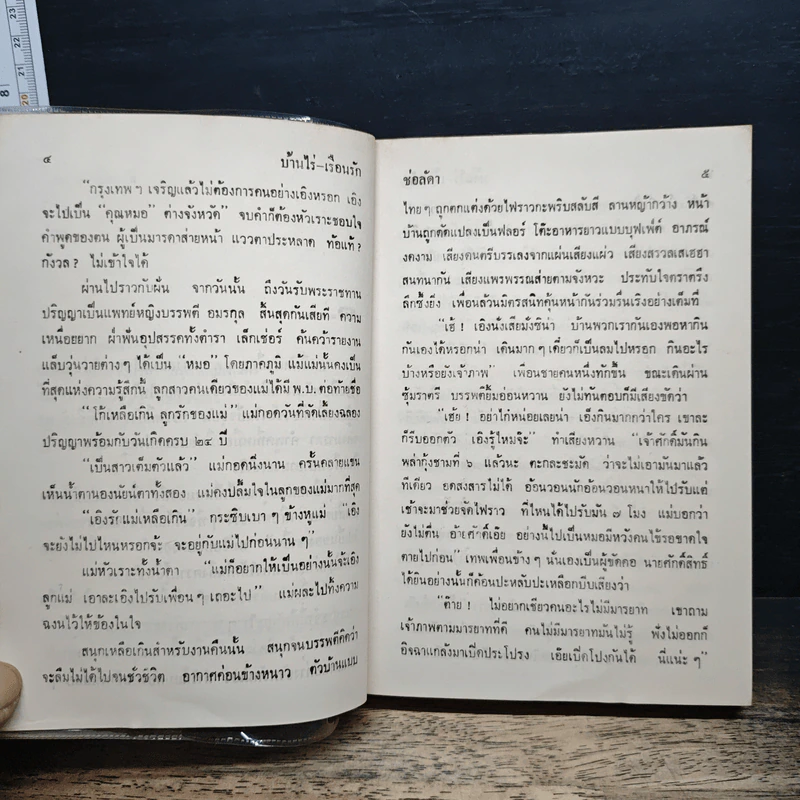 ๔
บ้านไร่-เรือนรัก
“กรุงเทพๆ เจริญแล้วไม่ต้องการคนอย่างเอิงหรอก เอิง
จะไปเป็น “คุณหมอ” ต่างจังหวัด” จบคำก็ต้องหัวเราะชอบใจ
คำพูดของตน ผู้เป็นมารดาส่ายหน้า แววตาประหลาด ท้อแท้?
กังวล? ไม่เข้าใจได้
ผ่านไปราวกับฝัน จากวันนั้น ถึงวันรับพระราชทาน
ปริญญาเป็นแพทย์หญิงบรรพตี อมรกุล สิ้นสุดกันเสียที ความ
เหนื่อยยาก ฝ่าฟันอุปสรรคทั้งตำรา เล็กเช่อร์ ค้นคว้ารายงาน
แล็บวุ่นวายต่างๆ ได้เป็น “หมอ” โดยภาคภูมิ แม้แม่นั้นคงเป็น
ที่สุดแห่งความรู้สึกนี้ ลูกสาวคนเดียวของแม่ได้มี พ.บ. ต่อท้ายชื่อ
“โก้เหลือเกิน ลูกรักของแม่” แม่กอดวันที่จัดเลี้ยงฉลอง
ปริญญาพร้อมกับวันเกิดครบ ๒๔ ปี
“เป็นสาวเต็มตัวแล้ว” แม่กอดนิ่งนาน ครั้นคลายแขน
เห็นน้ำตานองนัยน์ตาทั้งสอง แม่คงปลื้มใจในลูกของแม่มากที่สุด
“เอิงรักแม่เหลือเกิน” กระซิบเบาๆ ข้างหูแม่ “เอิง
จะยังไม่ไปไหนหรอกจ้ะ จะอยู่กับแม่ไปก่อนนานๆ”
แม่หัวเราะทั้งน้ำตา “แม่ก็อยากให้เป็นอย่างนั้นจ้ะเอิง
ลูกแม่ เอาละเอิงไปรับเพื่อนๆ เถอะไป” แม่ผละไปทิ้งความ
ฉงนไว้ให้ข้องในใจ
สนุกเหลือเกินสำหรับงานคืนนั้น สนุกจนบรรพตีคิดว่า
จะลืมไม่ได้ไปจนชั่วชีวิต อากาศค่อนข้างหนาว ตัวบ้านแบบ
ช่อลัดา
๕
ไทยๆ ถูกตกแต่งด้วยไฟราวกะพริบสลับสี ลานหญ้ากว้าง หน้า
บ้านถูกดัดแปลงเป็นฟลอร์ โต๊ะอาหารยาวแบบบุฟเฟ่ต์ อาภรณ์
งดงาม เสียงดนตรีบรรเลงจากแผ่นเสียงแผ่ว เสียงสรวลเสเฮฮา
สนทนากัน เสียงแพรพรรณส่ายตามจังหวะ ประทับใจตราตรึง
ลึกซึ้งยิ่ง เพื่อนล้วนมิตรสนทคุ้นหน้ากันร่วมรื่นเริงอย่างเต็มที่
“เฮ้! เอิงนั่งเสียมั่งซิน่า บ้านพวกเรากันเองพอหากิน
กันเองได้หรอกน่า เดินมากๆ เดี๋ยวก็เป็นลมไปหรอก กินอะไร
บ้างหรือยังเจ้าภาพ” เพื่อนชายคนหนึ่งทักขึ้น ขณะเดินผ่าน
ซุ้มราตรี บรรพตียิ้มอ่อนหวาน ยังไม่ทันตอบก็มีเสียงขัดว่า
“เฮ้ย! อย่าไก๋หน่อยเลยน่า เอิงกินมากกว่าใคร เขาละ
ก็รีบออกตัว เอิงรู้ไหมจ๊ะ” ทำเสียงหวาน “เจ้าศักดิ์มันกิน
พล่ากุ้งชามที่ ๖ แล้วนะ ตะกละชะมัด ว่าจะไม่เอามันมาแล้ว
ทีเดียว อดสงสารไม่ได้ อ้อนวอนนักอ้อนวอนหนาให้ไปรับแต่
เช้าจะมาช่วยจัดไฟราว ที่ไหนได้ไปรับมัน ๗ โมง แม่บอกว่า
ยังไม่ตื่น อ้ายศักดิ์เอ๊ย อย่างนี้ไปเป็นหมอมีหวังคนไข้รอขาดใจ
ตายไปก่อน” เทพเพื่อนข้างๆ นั่นเองเป็นผู้ขัดคอ นายศักดิ์สิทธิ์
ได้ยินอย่างนั้นก็ค้อนปะหลับปะเหลือกบีบเสียงว่า
“ต๊าย! ไม่อยากเชียวคนอะไรไม่มีมารยาท เขาถาม
เจ้าภาพตามมารยาทที่ดี คนไม่มีมารยาทมันไม่รู้ ฟังไม่ออกก็
อิจฉาแกล้งมาเปิดประโปรง เอ๊ยเปิดโปงกันได้ นี่แน่ะๆ”